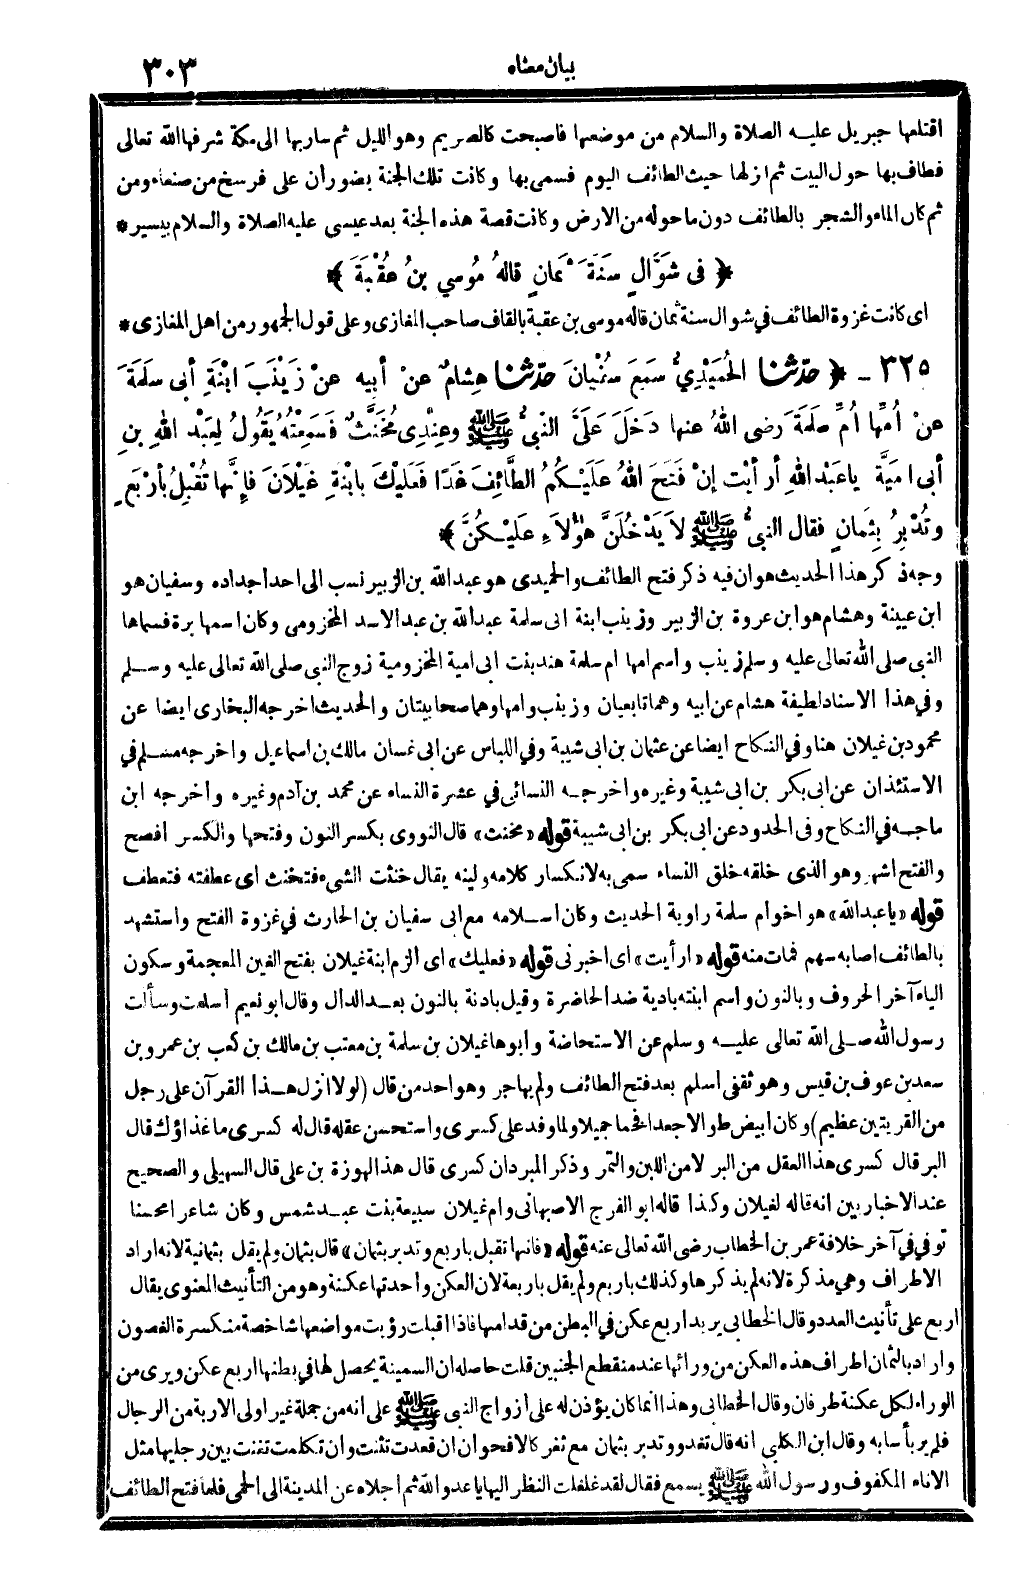 بيان معناه ٣٠٣
اقتلعها جبريل عليه الصلاة والسلام من موضعها فاصبحت كالصريم وهو الليل ثم ساربها الى مكة شرفها الله تعالى
فطاف بها حول البيت ثم انزلها حيث الطائف اليوم فسمى بها وكانت تلك الجنة بضوران على فرسخ من صنعاء ومن
ثم كان الماء والشجر بالطائف دون ما حوله من الارض وكانت قصة هذه الجنة بعد عيسى عليه الصلاة والسلام بيسير *
﴿ فى شَوَّالٍ سَنَةَ ثَمَانٍ قالهُ مُوسي بنُ عُقْبَةَ ﴾
اى كانت غزوة الطائف في شوال سنة ثمان قاله موسى بن عقبة بالقاف صاحب المغازى وعلى قول الجمهور من اهل المغازى *
٣٢٥ ـ ﴿ حدّثنا الحُمَيْدِيُّ سَمِعَ سُفْيانَ حدّثنا هِشامٌ عنْ أبيه عنْ زَيْنَبَ ابْنَةِ أبى سلَمَةَ
عنْ اُمِّها اُمِّ سلَمَةَ رضى اللهُ عنها دَخَلَ عَلَىَّ النبىُّ ﷺ وعِنْدِى مُخَنَّثٌ فَسَمِعْتُهُ يَقُولُ لِعَبْدِ اللهِ بنِ
أبى اميَّةَ ياعَبْدَ اللهِ أرأيْتَ إنْ فَتَحَ اللهُ عَلَيْكُمُ الطَّائِفَ غَدًا فَعَلَيْكَ بابْنَةِ غَيْلَانَ فإِنَّها تُقْبِلُ بأرْبَعٍ
وتُدْبِرُ بِثَمانٍ فقال النبىُّ ﷺ لا يَدْخُلَنَّ هؤُلاَءِ عَلَيْكُنَّ ﴾
وجه ذكر هذا الحديث هو ان فيه ذكر فتح الطائف والحميدى هو عبد الله بن الزبير نسب الى احد اجداده وسفيان هو
ابن عيينة وهشام هو ابن عروة بن الزبير وزينب ابنة ابى سلمة عبد الله بن عبد الاسد المخزومى وكان اسمها برة فسماها
النبى صلى الله تعالى عليه وسلم زينب واسم امها ام سلمة هند بنت ابى امية المخزومية زوج النبى صلى الله تعالى عليه وسلم
وفي هذا الاسناد لطيفة هشام عن ابيه وهما تابعيان وزينب وامها وهما صحابيتان والحديث اخرجه البخارى ايضا عن
محمود بن غيلان هنا وفي النكاح ايضا عن عثمان بن ابى شيبة وفي اللباس عن ابى غسان مالك بن اسماعيل واخرجه مسلم في
الاستئذان عن ابى بكر بن ابى شيبة وغيره واخرجه النسائى في عشرة النساء عن محمد بن آدم وغيره واخرجه ابن
ماجه في النكاح وفى الحدود عن ابى بكر بن ابى شيبة قوله «مخنث» قال النووى بكسر النون وفتحها والكسر افصح
والفتح اشهر وهو الذى خلقه خلق النساء سمى به لانكسار كلامه ولينه يقال خنثت الشىء فتخنث اى عطفته فتعطف
قوله «يا عبد الله» هو اخو ام سلمة راوية الحديث وكان اسلامه مع ابى سفيان بن الحارث في غزوة الفتح واستشهد
بالطائف اصابه سهم فمات منه قوله «ارأيت» اى اخبرنى قوله «فعليك» اى الزم ابنة غيلان بفتح الغين المعجمة وسكون
الياء آخر الحروف وبالنون واسم ابنته بادية ضد الحاضرة وقيل بادنة بالنون بعد الدال وقال ابو نعيم اسلمت وسألت
رسول الله صلى الله تعالى عليه وسلم عن الاستحاضة وابوها غيلان بن سلمة بن معتب بن مالك بن كعب بن عمرو بن
سعد بن عوف بن قيس وهو ثقفى اسلم بعد فتح الطائف ولم يهاجر وهو احد من قال (لولا انزل هذا القرآن على رجل
من القريتين عظيم) وكان ابيض طوالا جعدا فخما جميلا ولما وفد على كسرى واستحسن عقله قال له كسرى ما غذاؤك قال
البر قال كسرى هذا العقل من البر لا من اللبن والتمر وذكر المبرد ان كسرى قال هذا لهوزة بن على قال السهيلى والصحيح
عند الاخباريين انه قاله لغيلان وكذا قاله ابو الفرج الاصبهانى وام غيلان سبيعة بنت عبد شمس وكان شاعرا محسنا
توفي في آخر خلافة عمر بن الخطاب رضى الله تعالى عنه قوله «فانها تقبل باربع وتدبر بثمان» قال بثمان ولم يقل بثمانية لانه اراد
الاطراف وهي مذكرة لانه لم يذكرها وكذلك باربع ولم يقل باربعة لان العكن واحدتها عكنة وهو من التأنيث المعنوى يقال
اربع على تأنيث العدد وقال الخطابى يريد اربع عكن في البطن من قدامها فاذا اقبلت رؤيت مواضعها شاخصة منكسرة الغصون
واراد بالثمان اطراف هذه العكن من ورائها عند منقطع الجنبين قلت حاصله ان السمينة يحصل لها في بطنها اربع عكن ويرى من
الوراء لكل عكنة طرفان وقال الخطابى وهذا انما كان يؤذن له على ازواج النبى ﷺ على انه من جملة غير اولى الاربة من الرجال
فلم ير بأسا به وقال ابن الكلبى انه قال تغدو وتدبر بثمان مع ثغر كالاقحوان ان قعدت تثنت وان تكلمت تغنت بين رجليها مثل
الاناء المكفوف ورسول الله ﷺ يسمع فقال لقد غلغلت النظر اليها يا عدو الله ثم اجلاه عن المدينة الى الحمى فلما فتح الطائف